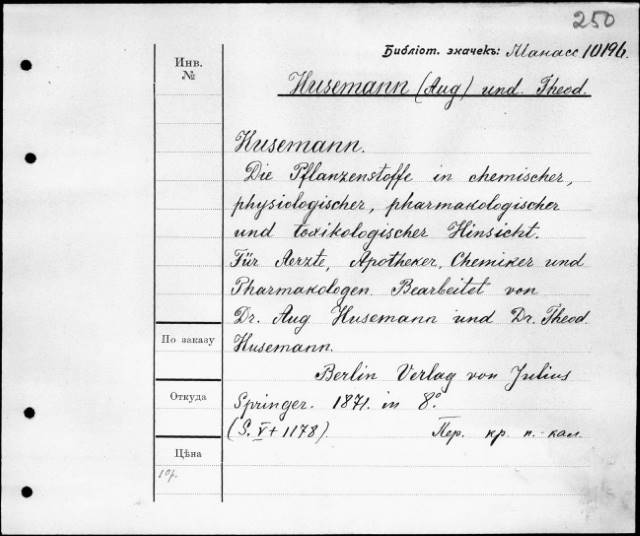 250
Библіот. значекъ: Манасс. 10196.
Инв.
№
Husemann (Aug) und Theod.
Husemann.
Die Pflanzenstoffe in chemischer,
physiologischer, pharmakologischer
und toxikologischer Hinsicht.
Für Aerzte, Apotheker, Chemiker und
Pharmakologen. Bearbeitet von
Dr. Aug Husemann und Dr. Theod.
По заказу
Husemann.
Berlin Verlag von Julius
Откуда
Springer. 1871. in 8º
(S. V + 1178). Пер. кр. п.-кал.
Цѣна
10р.